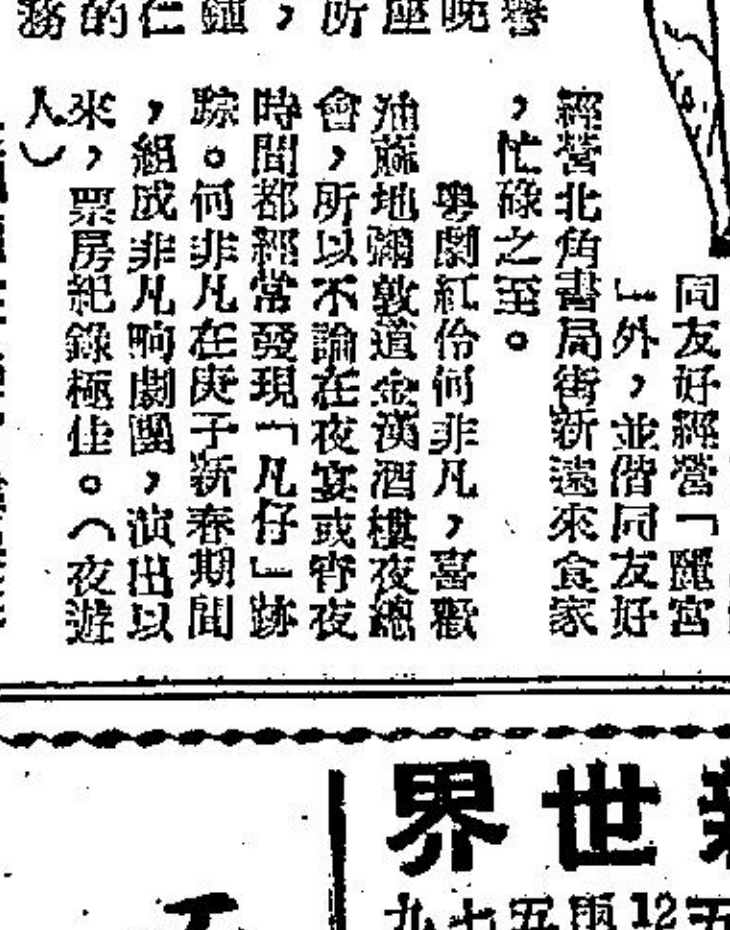 同友好經營「麗宮
」外，並偕同友好
經營北角書局街新遠來食家
，忙碌之至。
粵劇紅伶何非凡，喜歡
油蔴地彌敦道金漢酒樓夜總
會，所以不論在夜宴或宵夜
時間都經常發現「凡仔」跡
踪。何非凡在庚子新春期間
，組成非凡响劇團，演出以
來，票房紀錄極佳。（夜遊
人）
世界